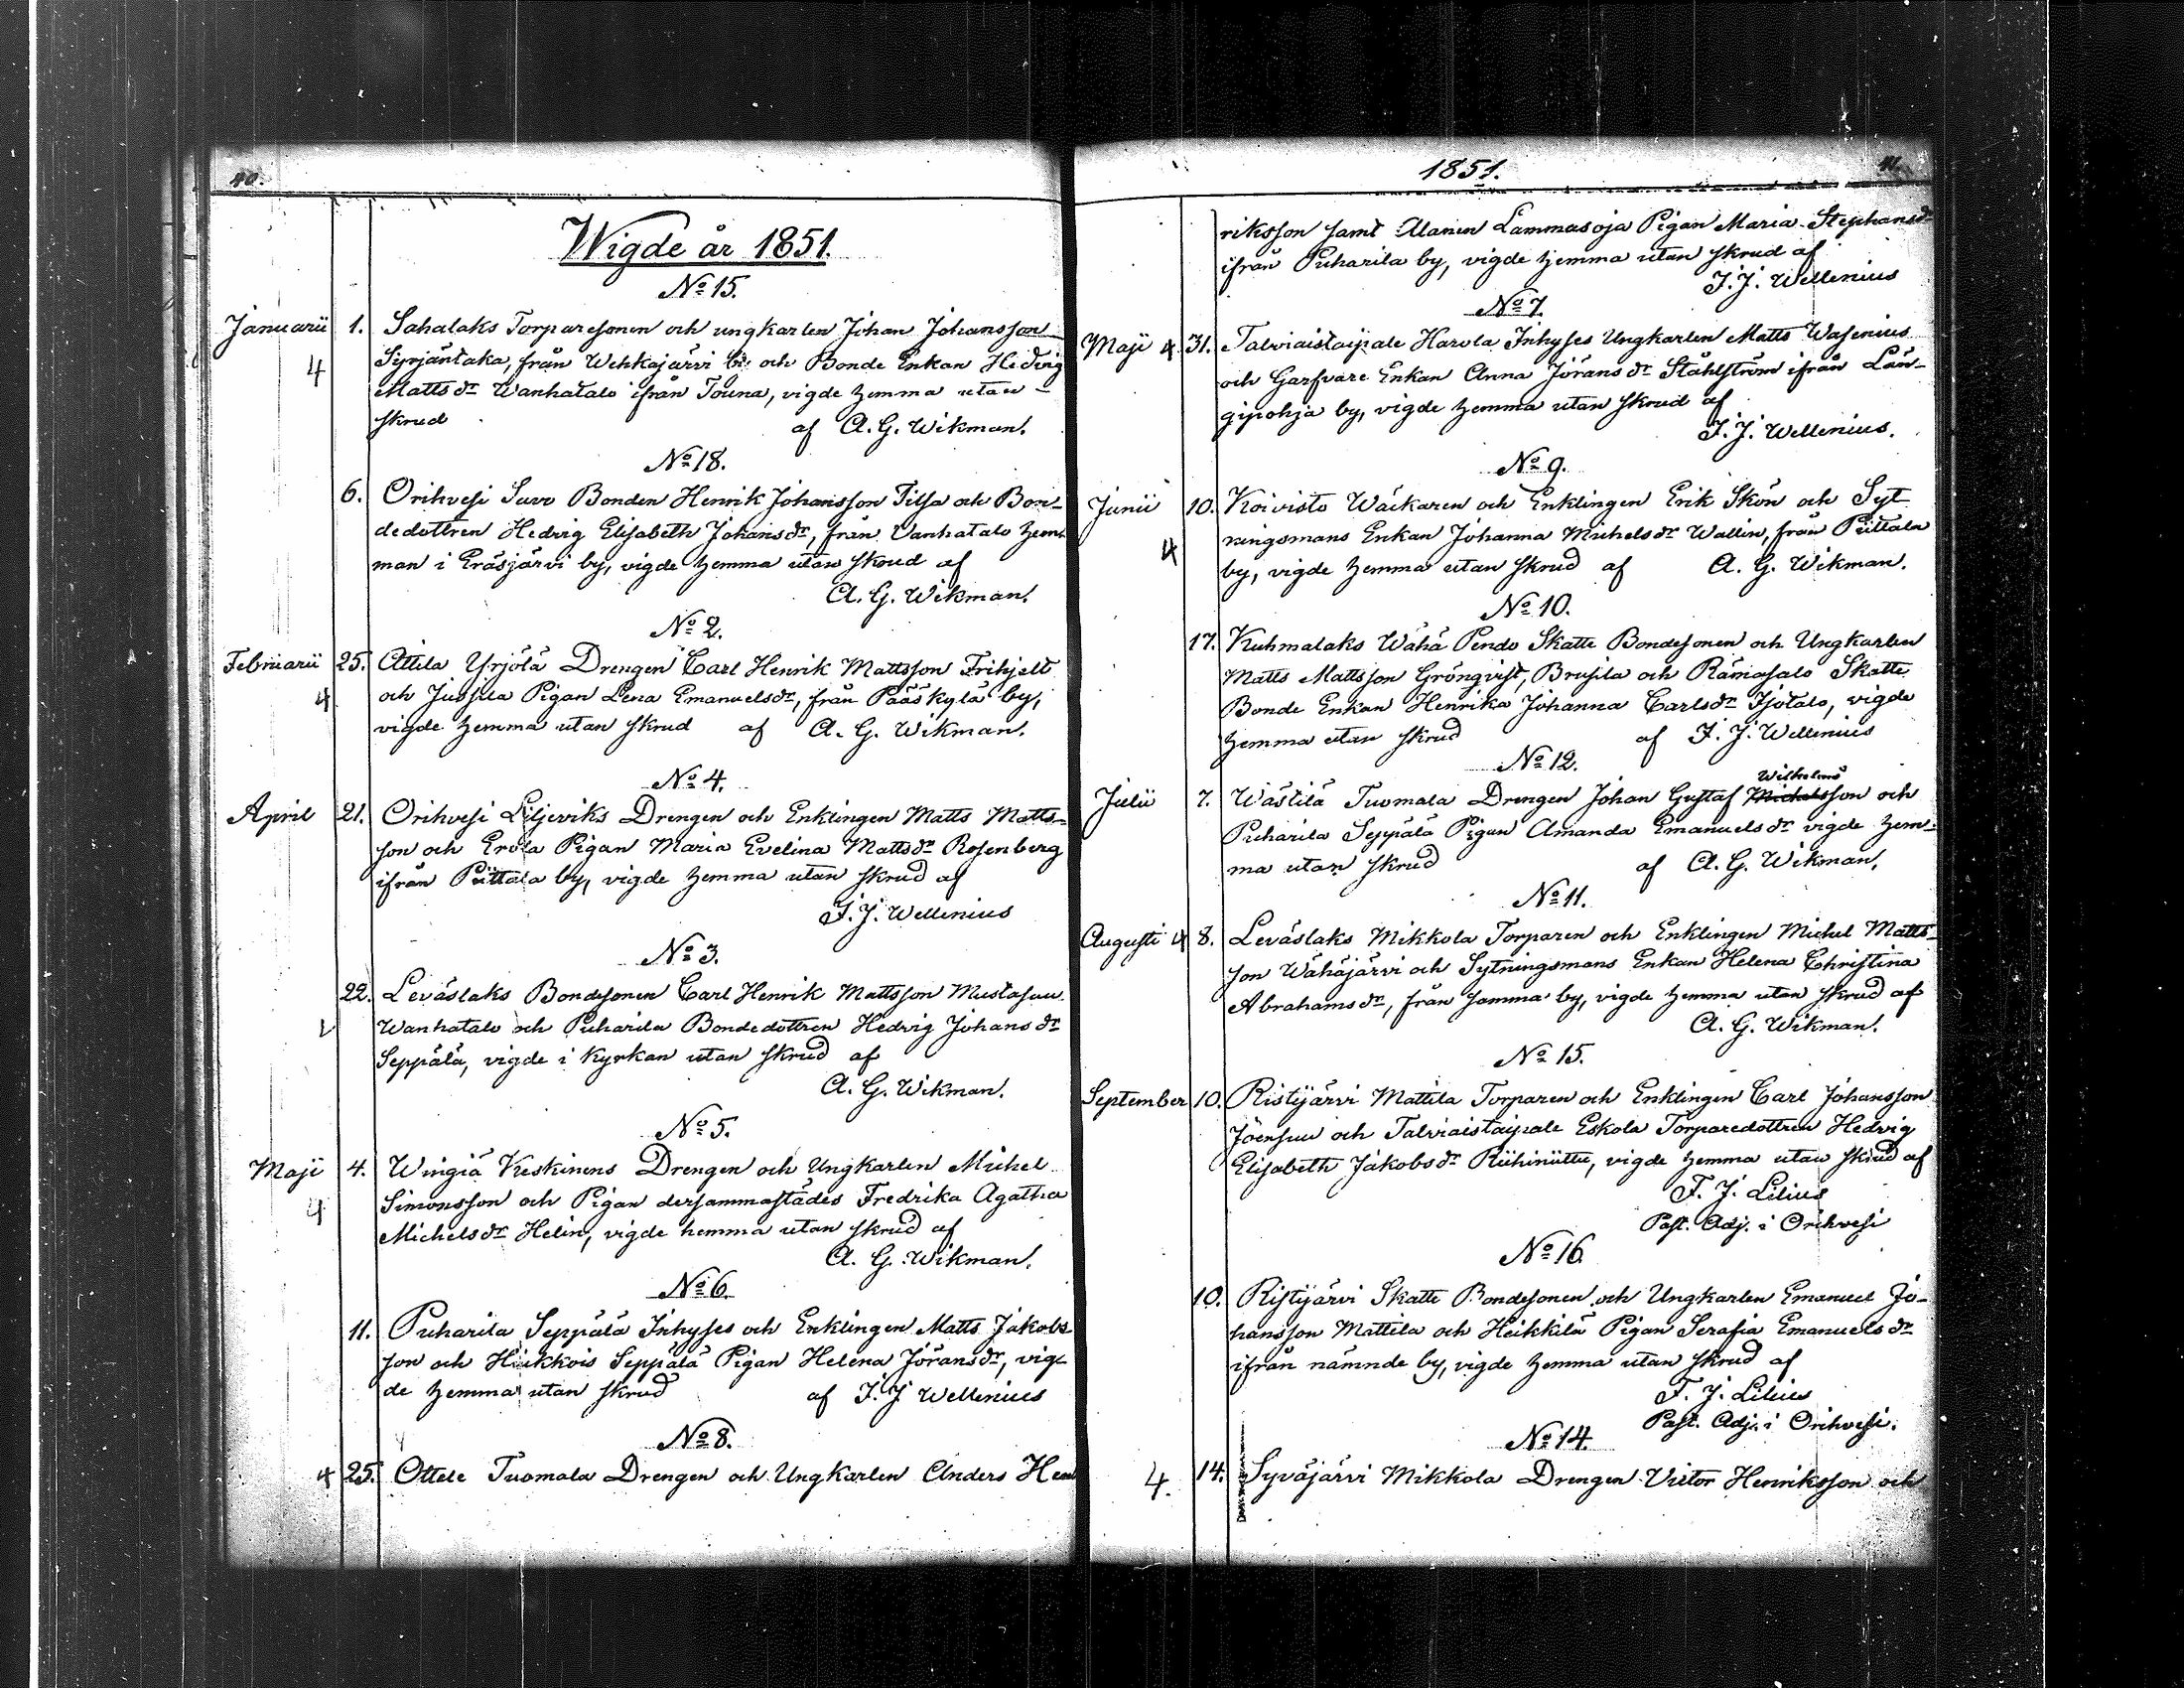 40.
Wigde år 1851.
No 15.
Januarii 1. Sahalaks Torparesonen och ungkarlen Johan Johansson
4 Syrjäntaka, från Wehkajärvi by och Bonde Enkan Hedvig
Mattsdr Wanhatalo ifrån Touna, vigde hemma utan
skrud af A. G. Wikman.
No 18.
6. Orihvesi Suvo Bonden Henrik Johansson Tilsa och Bon-
dedottren Hedvig Elisabeth Johansdr, från Vanhatalo hem-
man i Eräsjärvi by, vigde hemma utan skrud af
A. G. Wikman.
No 2.
Februarii 25. Attila Yrjölä Drengen Carl Henrik Mattsson Frihjelt
4 och Jussila Pigan Lena Emanuelsdr, från Pääskylä by,
vigde hemma utan skrud af A. G. Wikman.
No 4.
April 21. Orihvesi Liljeviks Drengen och Enklingen Matts Matts-
son och Erola Pigan Maria Evelina Mattsdr Rosenberg
ifrån Pittala by, vigde hemma utan skrud af
F. J. Wellenius
No 3.
22. Leväslaks Bondesonen Carl Henrik Mattsson Mustasuu
Wanhatalo och Puharila Bondedottren Hedvig Johansdr
Seppälä, vigde i Kyrkan utan skrud af
A. G. Wikman.
No 5.
Maji 4. Wingiä Keskinens Drengen och Ungkarlen Michel
4 Simonsson och Pigan dersammastädes Fredrika Agatha
Michelsdr Helin, vigde hemma utan skrud af
A. G. Wikman.
No 6.
11. Puharila Seppälä Inhyses och Enklingen Matts Jakobs-
son och Hirkkois Seppälä Pigan Helena Jöransdr, vig-
de hemma utan skrud af F. J. Wellenius
No 8.
4 25. Ottele Tuomala Drengen och Ungkarlen Anders Hen
1851.
41.
riksson samt Alanen Lammasoja Pigan Maria Stephansdr
ifrån Puharila by, vigde hemma utan skrud af
F. J. Wellenius
No 7.
Maji 4 31. Talviaistaipale Harola Inhyses Ungkarlen Matts Wasenius
och Garfvare Enkan Anna Jöransdr Ståhlström ifrån Län-
gipohja by, vigde hemma utan skrud af
F. J. Wellenius.
No 9.
Junii 10. Koivisto Wäckaren och Enklingen Erik Skön och Syt
4 ningsmans Enkan Johanna Michelsdr Wallin, från Pittala
by, vigde hemma utan skrud af A. G. Wikman.
No 10.
17. Kuhmalaks Wähä Pendo Skatte Bondesonen och Ungkarlen
Matts Mattsson Grönqvist, Brusila och Rämäsalo Skatte
Bonde Enkan Henrika Johanna Carlsdr Isotalo, vigde
hemma utan skrud af F. J. Wellenius
No 12.
Wilhelms
Julii 7. Wästilä Tuomala Drengen Johan Gustaf Michelsson och
Puharila Seppälä Pigan Amanda Emanuelsdr vigde hem-
ma utan skrud af A. G. Wikman.
No 11.
Augusti 4 8. Leväslaks Mikkola Torparen och Enklingen Michel Matts-
son Wähäjärvi och Sytningsmans Enkan Helena Christina
Abrahamsdr, från samma by, vigde hemma utan skrud af
A. G. Wikman.
No 15.
September 10. Ristijärvi Mattila Torparen och Enklingen Carl Johansson
Joensuu och Talviaistaipale Eskola Torparedottren Hedvig
Elisabeth Jakobsdr Riihiniittu, vigde hemma utan skrud af
F. J. Lilius
Past. Adj. i Orihvesi
No 16
10. Ristijärvi Skatte Bondesonen och Ungkarlen Emanuel Jo-
hansson Mattila och Heikkilä Pigan Serafia Emanuelsdr
ifrån nämnde by, vigde hemma utan skrud af
F. J. Lilius
Past. Adj. i Orihvesi.
No 14.
4. 14. Syväjärvi Mikkola Drengen Victor Henriksson och